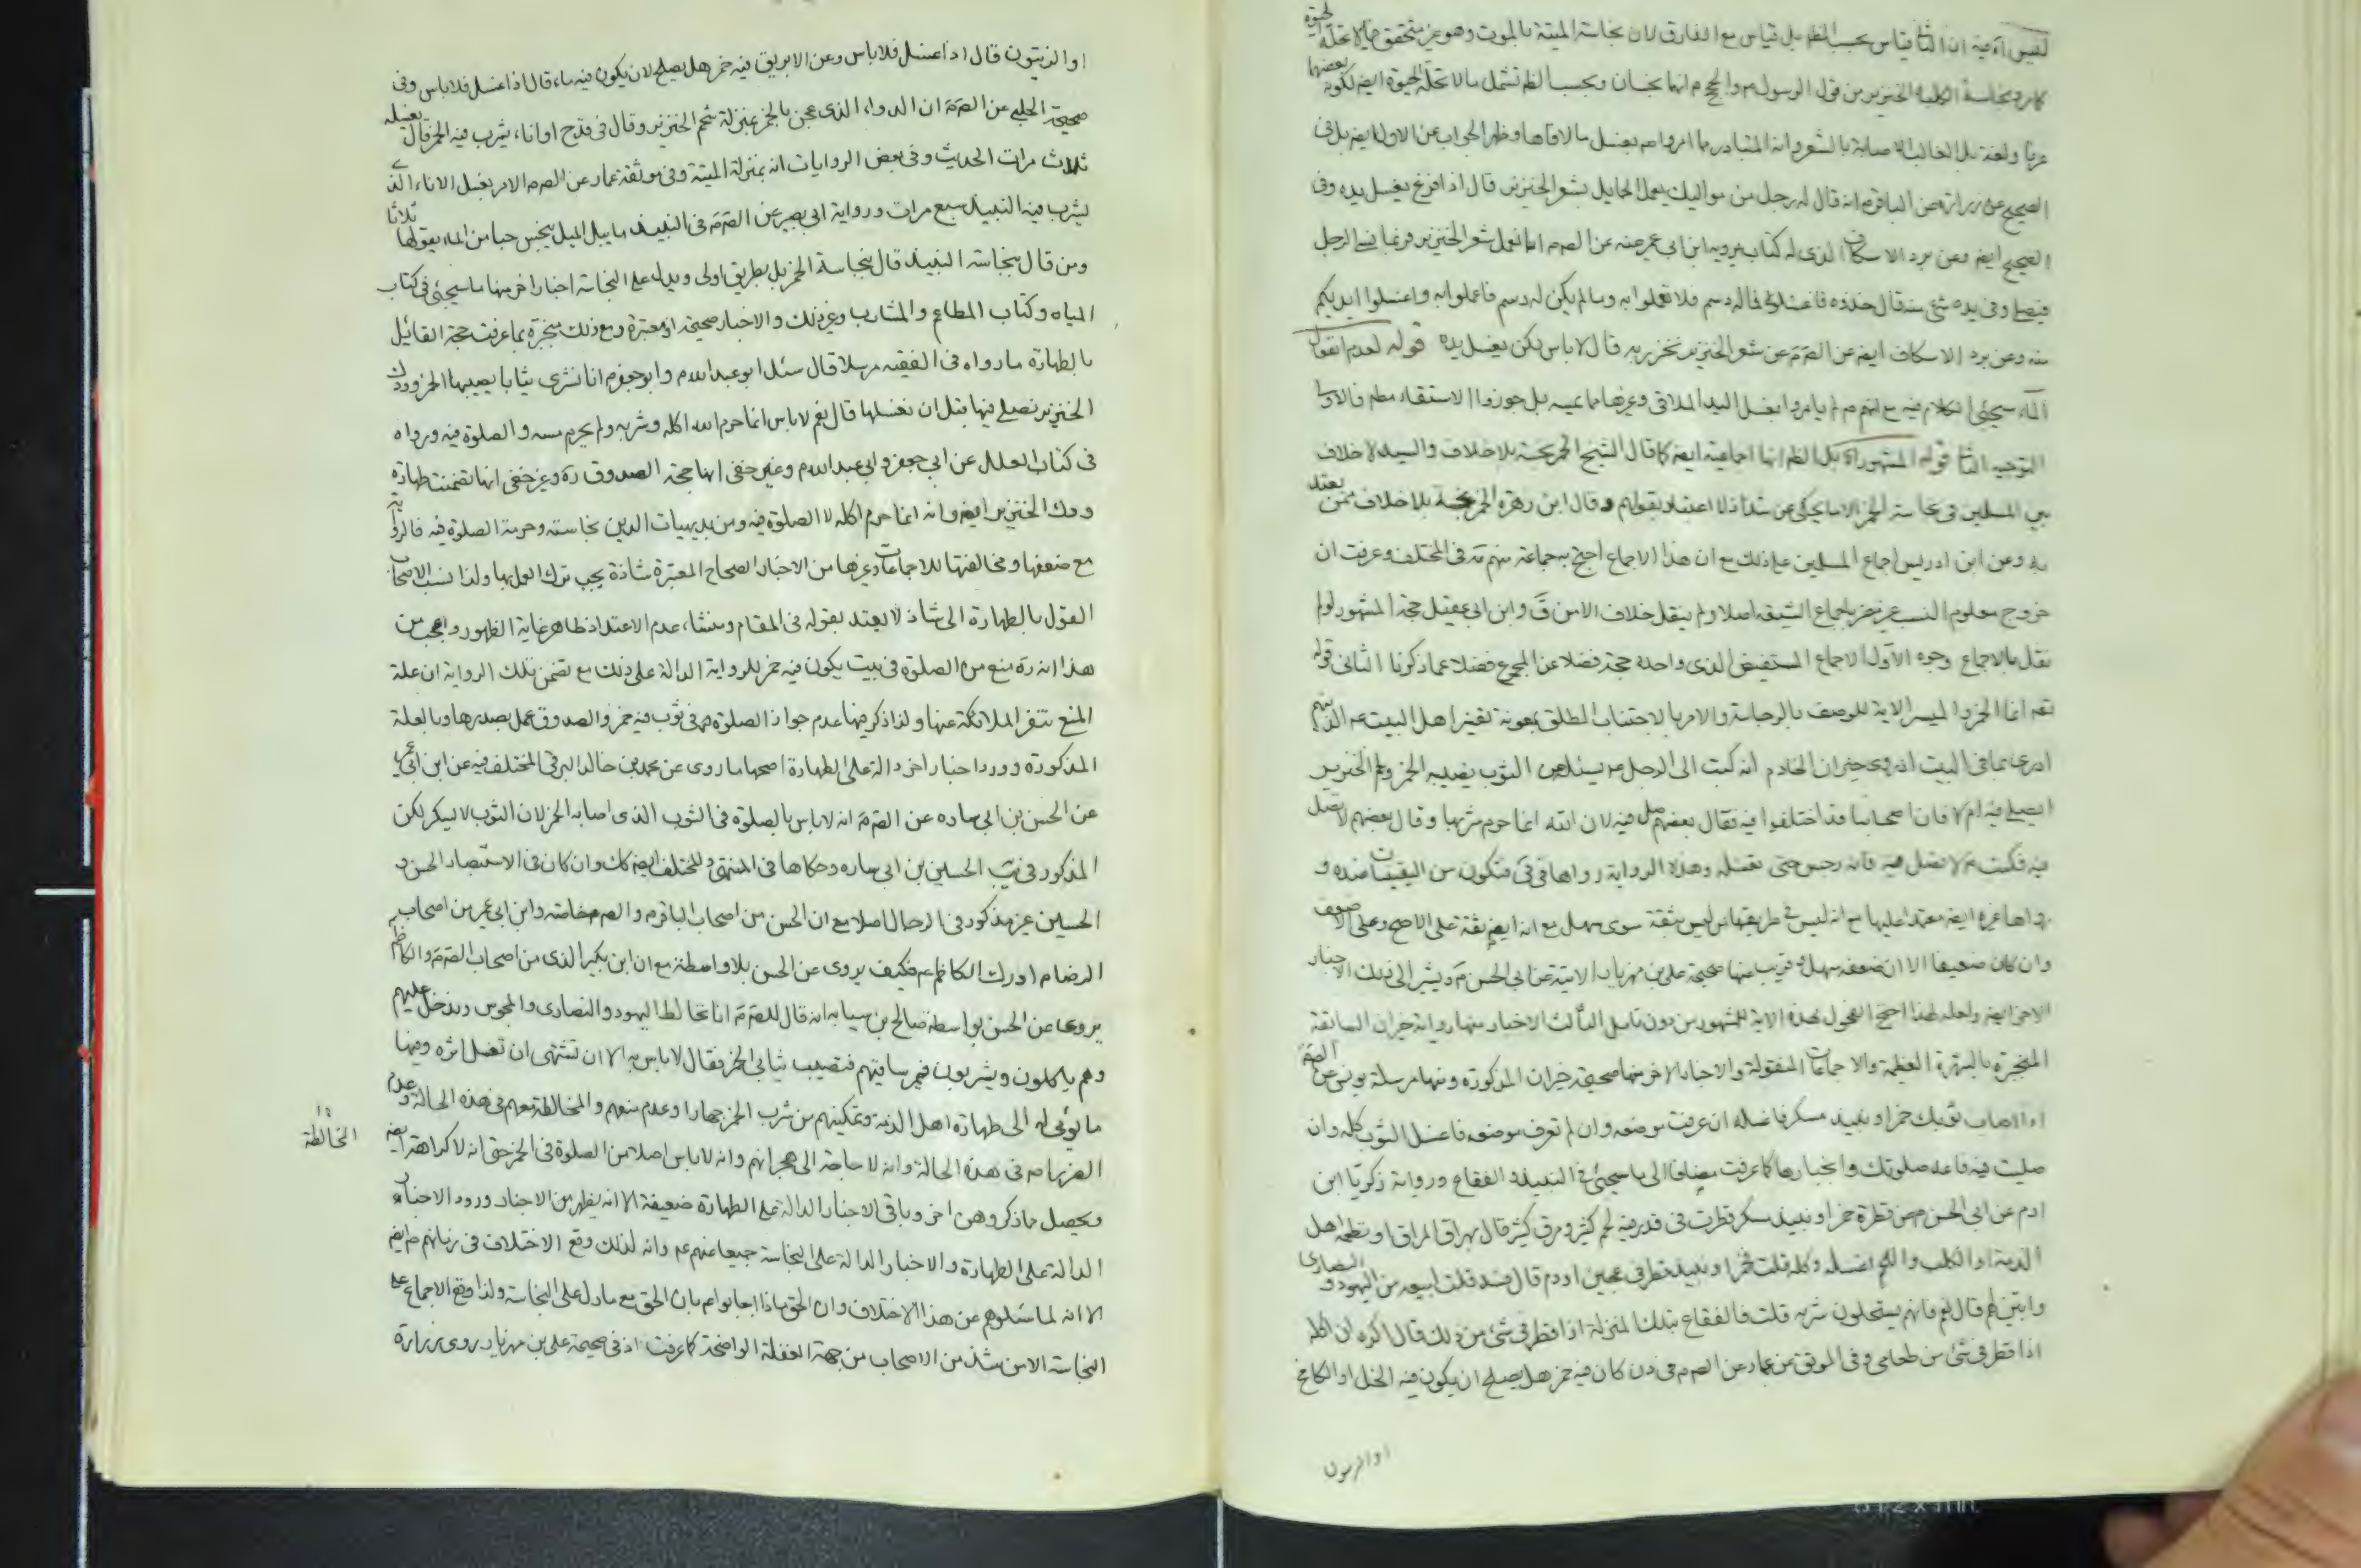 ليس آه فيه ان الثا قياس بحسب الظ بل قياس مع الفارق لان نجاسة الميتة بالموت وهو غير متحقق فيما لا تحله الحيوة
كا برد نجاسة الكلب والخنزير من قول الرسول ص والحجج م انهما نجسان وبحسب الظ تشمل ما لا تحله الحيوة ايضا لكونه بعضها
عرفا ولغة بل الغالب الاصابة بالشعر وانه المتبادر مما امروا م بغسل ما لاقاها وظهر الجواب عن الاول ايضا بل في
الصحيح عن زرارة عن الباقر م انه قال له رجل من مواليك يعمل الحمايل بشعر الخنزير قال اذا فرغ فليغسل يده وفي
الصحيح ايضا وعن برد الاسكاف الذي له كتاب يرويه ابن ابي عمير عنه عن الص م انا نعمل شعر الخنزير فربما نسي الرجل
فيصلي وفي يده شئ منه قال خذوه فاغسلوه فما له دسم فلا تعملوا به وما لم يكن له دسم فاعملوا به واغسلوا ايديكم
منه وعن برد الاسكاف ايضا عن الص م عن شعر الخنزير نخرز به قال لا باس لكن يغسل يده قوله لعدم انفعال
الماء سيجئ الكلام فيه مع انهم م لم يامروا بغسل اليد الملاقي وغيرها مما عيبه بل جوزوا الاستقاء مطم فالاولى
التوجيه الثا قوله المشهور آه بل الظ انها اجماعية ايضا كما قال الشيخ الخمر نجسة بلا خلاف والسيد لا خلاف
بين المسلمين في نجاسة الخمر الا ما يحكى عن شذاذ لا اعتبار بقولهم وقال ابن زهرة الخمر نجسة بلا خلاف ممن يعتد
به وعن ابن ادريس اجماع المسلمين على ذلك مع ان هذا الاجماع احتج به جماعة منهم مه في المختلف وعرفت ان
خروج معلوم النسب غير مضر باجماع الشيعة اصلا ولم ينقل خلاف الا من ق وابن ابي عقيل حجة المشهور لولم
نقل بالاجماع وجوه الاول الاجماع المستفيض الذي واحده حجة فضلا عن المجموع فضلا عما ذكرنا الثاني قوله
تعه انما الخمر والميسر الاية للوصف بالرجاسة والامر بالاجتناب المطلق بمعونة تفسير اهل البيت عم الذينهم
ادرى بما في البيت اذ روى خيران الخادم انه كتب الى الرجل عم يسئله عن الثوب يصيبه الخمر ولحم الخنزير
ايصلي فيه ام لا فان اصحابنا قد اختلفوا فيه فقال بعضهم صل فيه لان الله انما حرم شربها وقال بعضهم لا تصل
فيه فكتب عم لا تصل فيه فانه رجس حتى تغسله وهذه الرواية رواها في في فتكون من اليقينيات عنده و
رواها غيره ايضا معتمدا عليها مع انه ليس في طريقها من ليس بثقة سوى سهل مع انه ايضا ثقة على الاصح وعلى الاضعف
وان كان ضعيفا الا ان ضعفه سهل وقريب منها صحيحة علي بن مهزيار الاتية عن ابي الحسن م ويشير الى ذلك الاخبار
الاخر ايضا ولعله لهذا احتج الفحول بهذه الاية للمشهور من دون تامل الثالث الاخبار منها رواية خيران السابقة
المنجبرة بالشهرة العظيمة والاجماعات المنقولة والاخبار الاخر منها صحيحة خيران المذكورة ومنها مرسلة يونس عن الص م
اذا اصاب ثوبك خمر او نبيذ مسكر فاغسله ان عرفت موضعه وان لم تعرف موضعه فاغسل الثوب كله وان
صليت فيه فاعد صلوتك وانجبارها كما عرفت مضافا الى ما سيجئ في النبيذ والفقاع ورواية زكريا ابن
ادم عن ابي الحسن م عن قطرة خمر او نبيذ مسكر قطرت في قدر فيه لحم كثير ومرق كثير قال يهراق المراق او يطعمه اهل
الذمة او الكلب واللحم اغسله وكله قلت فخمر او نبيذ قطر في عجين او دم قال فسد قلت ابيعه من اليهود والنصارى
وابين لهم قال نعم فانهم يستحلون شربه قلت فالفقاع بتلك المنزلة اذا قطر في شئ من ذلك قال اكره ان اكله
اذا قطر في شئ من طعامي وفي الموثق عن عمار عن الص م في دن كان فيه خمر هل يصلح ان يكون فيه الخل او الكامخ
او الزيتون
او الزيتون قال اذا غسل فلا باس وعن الابريق فيه خمر هل يصلح لان يكون فيه ماء قال اذا غسل فلا باس وفي
صحيحة الحلبي عن الص م ان الدواء الذي عجن بالخمر بمنزلة شحم الخنزير وقال في قدح او اناء يشرب فيه الخمر قال يغسله
ثلاث مرات الحديث وفي بعض الروايات انه بمنزلة الميتة وفي موثقة عمار عن الص م الامر بغسل الاناء الذي
يشرب فيه النبيذ سبع مرات ورواية ابي بصير عن الص م في النبيذ ما يبل الميل ينجس حبا من الماء يقولها ثلاثا
ومن قال بنجاسة النبيذ قال بنجاسة الخمر بل بطريق اولى ويدل على النجاسة اخبار اخر منها ما سيجئ في كتاب
المياه وكتاب المطاعم والمشارب وغير ذلك والاخبار صحيحة او معتبرة ومع ذلك منجبرة بما عرفت حجة القائل
بالطهارة ما رواه في الفقيه مرسلا قال سئل ابو عبد الله م وابو جعفر م انا نشري ثيابا يصيبها الخمر وودك
الخنزير نصلي فيها قبل ان نغسلها قال نعم لا باس انما حرم الله اكله وشربه ولم يحرم مسه والصلوة فيه ورواه
في كتاب العلل عن ابي جعفر وابي عبد الله م وغير خفي انها حجة الصدوق ره وغير خفي انها تضمنت طهارة
ودك الخنزير ايضا وانه انما حرم اكله لا الصلوة فيه ومن بديهيات الدين نجاسته وحرمة الصلوة فيه فالرواية
مع ضعفها ومخالفتها للاجماعات وغيرها من الاخبار الصحاح المعتبرة شاذة يجب ترك العمل بها ولذا نسب الاصحاب
القول بالطهارة الى شاذ لا يعتد بقوله في المقام ومنشاء عدم الاعتداد ظاهر غاية الظهور واعجب من
هذا انه ره منع من الصلوة في بيت يكون فيه خمر للرواية الدالة على ذلك مع تضمن تلك الرواية ان علة
المنع تنفر الملائكة عنها ولذا ذكر فيها عدم جواز الصلوة في ثوب فيه خمر والصدوق عمل بصدرها وبالعلة
المذكورة وورد اخبار اخر دالة على الطهارة اصحها ما روى عن محمد بن خالد البرقي المختلف فيه عن ابن ابي عمير
عن الحسن بن ابي ساره عن الص م انه لا باس بالصلوة في الثوب الذي اصابه الخمر لان الثوب لا يسكر لكن
المذكور في يب الحسين بن ابي ساره وحكاها في المنتهى والمختلف ايضا كك وان كان في الاستبصار الحسن و
الحسين غير مذكور في الرجال اصلا مع ان الحسن من اصحاب الباقر م والص م خاصة وابن ابي عمير من اصحاب
الرضا م ادرك الكاظم عم فكيف يروي عن الحسن بلا واسطة مع ان ابن بكير الذي من اصحاب الص م والكاظم
يروى عن الحسن بواسطة صالح بن سيابه انه قال للص م انا نخالط اليهود والنصارى والمجوس وندخل عليهم
وهم ياكلون ويشربون فيمر ساقيهم فتصيب ثيابي الخمر فقال لا باس به الا ان تشتهي ان تغسل اثره وفيها
ما يومي اليه الى طهارة اهل الذمة وتمكينهم من شرب الخمر جهارا وعدم منعهم والمخالطة معهم في هذه الحالة وعدم
المخالطة
الضرر اصم في هذه الحالة وانه لا حاجة الى هجرانهم وانه لا باس اصلا من الصلوة في الخمر حتى انه لا كراهة ايضا
ويحصل مما ذكر وهن اخر وباقي الاخبار الدالة على الطهارة ضعيفة الا انه يظهر من الاخبار ورود الاخبار
الدالة على الطهارة والاخبار الدالة على النجاسة جميعا عنهم عم وانه لذلك وقع الاختلاف في زمانهم م ايضا
الا انه لما سئلوهم عن هذا الاختلاف وان الحق ماذا اجابوا عم بان الحق مع ما دل على النجاسة ولذا وقع الاجماع على
النجاسة الا من شذ من الاصحاب من جهة الغفلة الواضحة كما عرفت اذ في صحيحة علي بن مهزيار روى زرارة